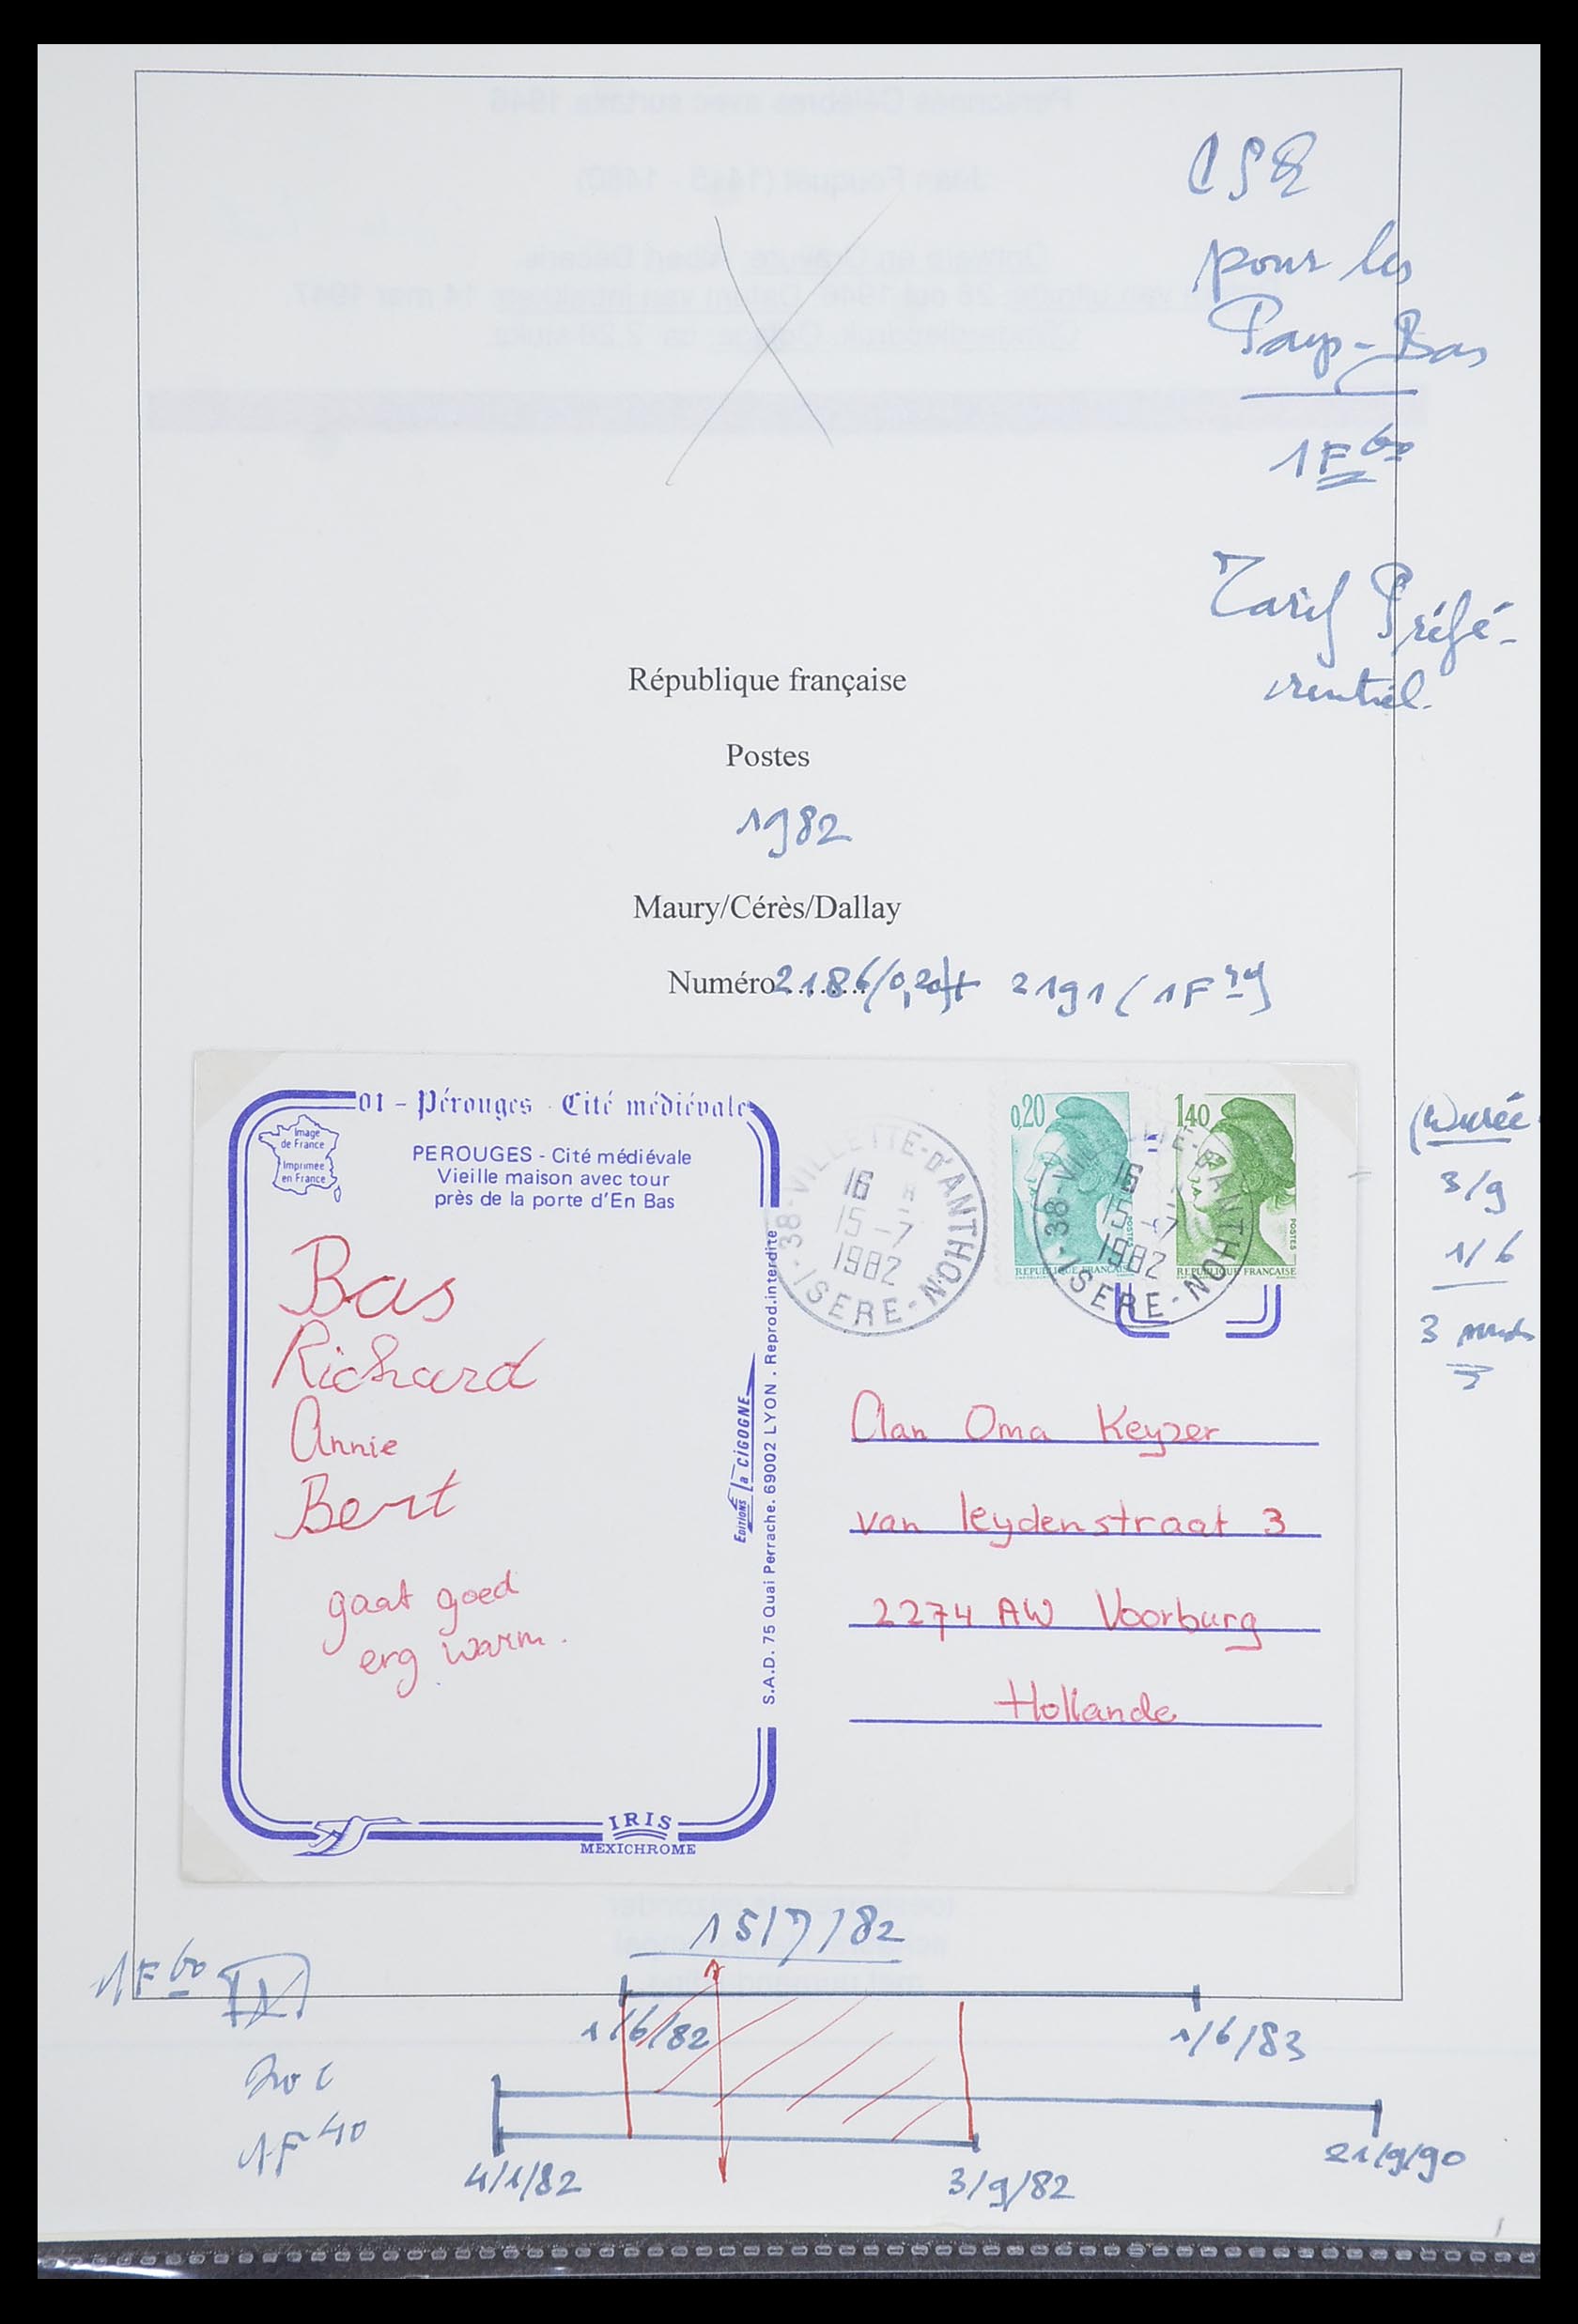 pour les
Pays-Bas
1F60
Tarif Préfé-
rentiel.
République française
Postes
1982
Maury/Cérès/Dallay
Numéro 2186(0,20)+ 2191(1F40)
01 - Pérouges - Cité médiévale
Image
de France
Imprimée
en France
PEROUGES - Cité médiévale
Vieille maison avec tour
près de la porte d'En Bas
Bas
Richard
Annie
Bert
gaat goed
erg warm.
EDITIONS la CIGOGNE
S.A.D. 75 Quai Perrache. 69002 LYON . Reprod.interdite
IRIS
MEXICHROME
38-VILLETTE-D'ANTHON
16
15-7
1982
-ISERE-
0,20
POSTES
REPUBLIQUE FRANÇAISE
1,40
POSTES
REPUBLIQUE FRANÇAISE
38-VILLETTE-D'ANTHON
16
15-7
1982
-ISERE-
Aan Oma Keyzer
van leydenstraat 3
2274 AW Voorburg
Hollande
Durée
3/9
1/6
3 mois
15/7/82
1F60
1/6/82
1/6/83
20c
1F40
4/1/82
3/9/82
21/9/90